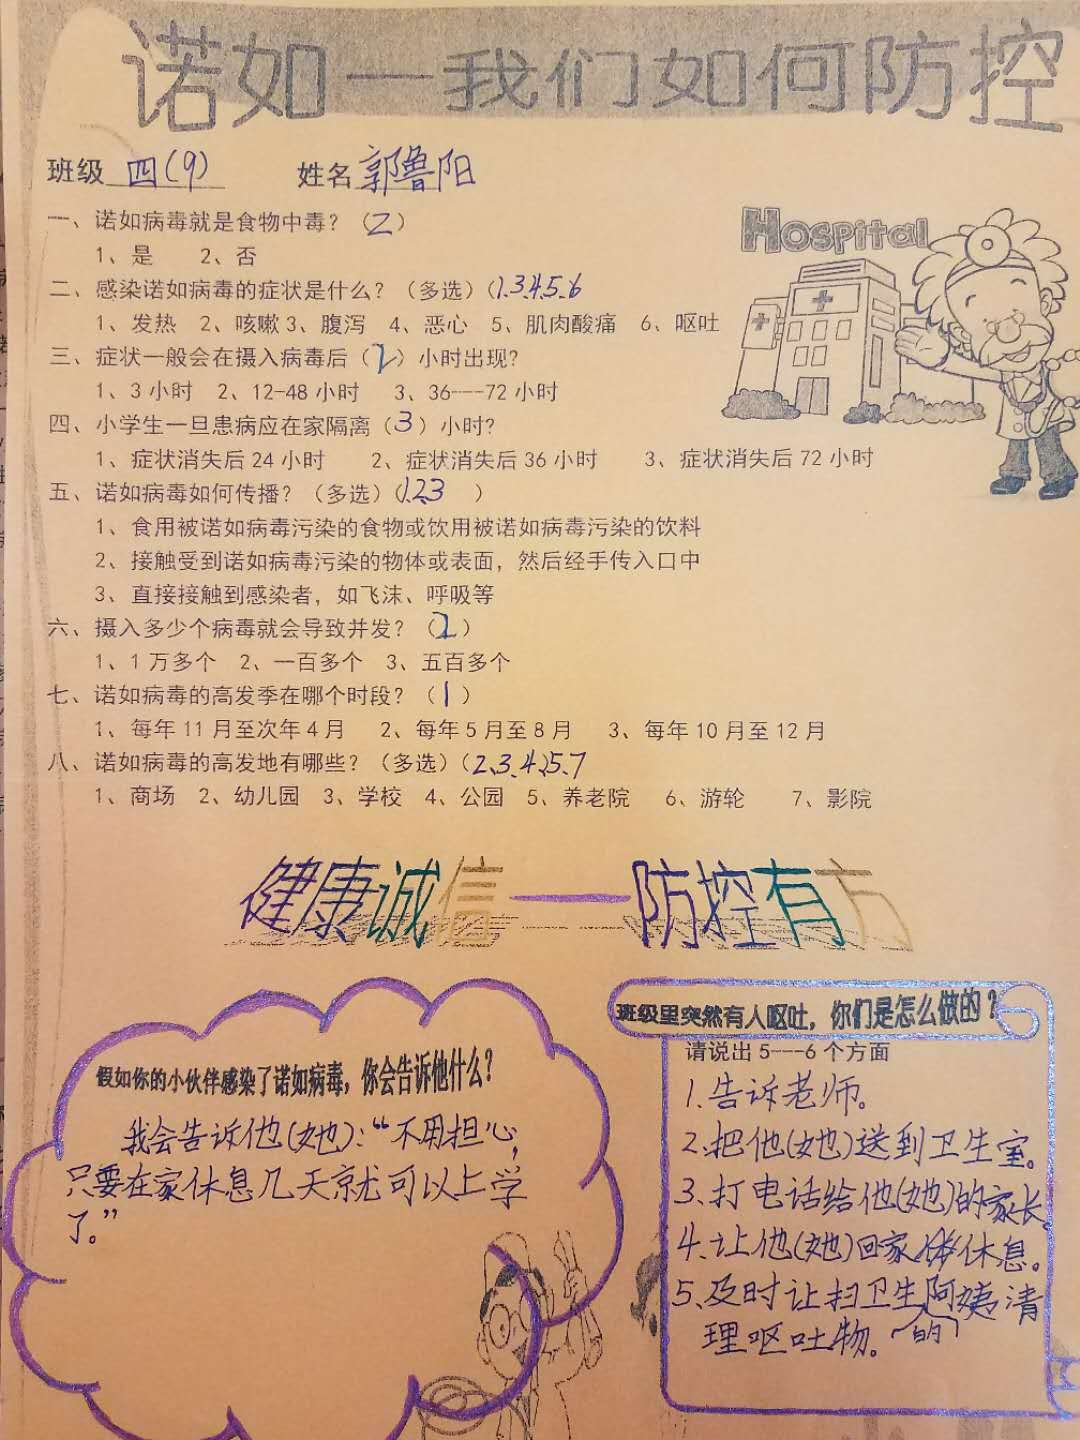 诺如一我们如何防控
班级 四(9) 姓名 郭鲁阳
Hospital
一、诺如病毒就是食物中毒？（2）
1、是 2、否
二、感染诺如病毒的症状是什么？（多选）（1.3.4.5.6
1、发热 2、咳嗽 3、腹泻 4、恶心 5、肌肉酸痛 6、呕吐
三、症状一般会在摄入病毒后（2）小时出现？
1、3 小时 2、12-48 小时 3、36---72 小时
四、小学生一旦患病应在家隔离（3）小时？
1、症状消失后 24 小时 2、症状消失后 36 小时 3、症状消失后 72 小时
五、诺如病毒如何传播？（多选）（1.2.3 ）
1、食用被诺如病毒污染的食物或饮用被诺如病毒污染的饮料
2、接触受到诺如病毒污染的物体或表面，然后经手传入口中
3、直接接触到感染者，如飞沫、呼吸等
六、摄入多少个病毒就会导致并发？（2）
1、1 万多个 2、一百多个 3、五百多个
七、诺如病毒的高发季在哪个时段？（1）
1、每年 11 月至次年 4 月 2、每年 5 月至 8 月 3、每年 10 月至 12 月
八、诺如病毒的高发地有哪些？（多选）（2、3、4、5、7
1、商场 2、幼儿园 3、学校 4、公园 5、养老院 6、游轮 7、影院
健康诚信——防控有方
假如你的小伙伴感染了诺如病毒，你会告诉他什么？
我会告诉他(她)：“不用担心，
只要在家休息几天就可以上学
了。”
班级里突然有人呕吐，你们是怎么做的？
请说出 5---6 个方面
1.告诉老师。
2.把他(她)送到卫生室。
3.打电话给他(她)的家长
4.让他(她)回家休息。
5、及时让扫卫生的阿姨清
理呕吐物。